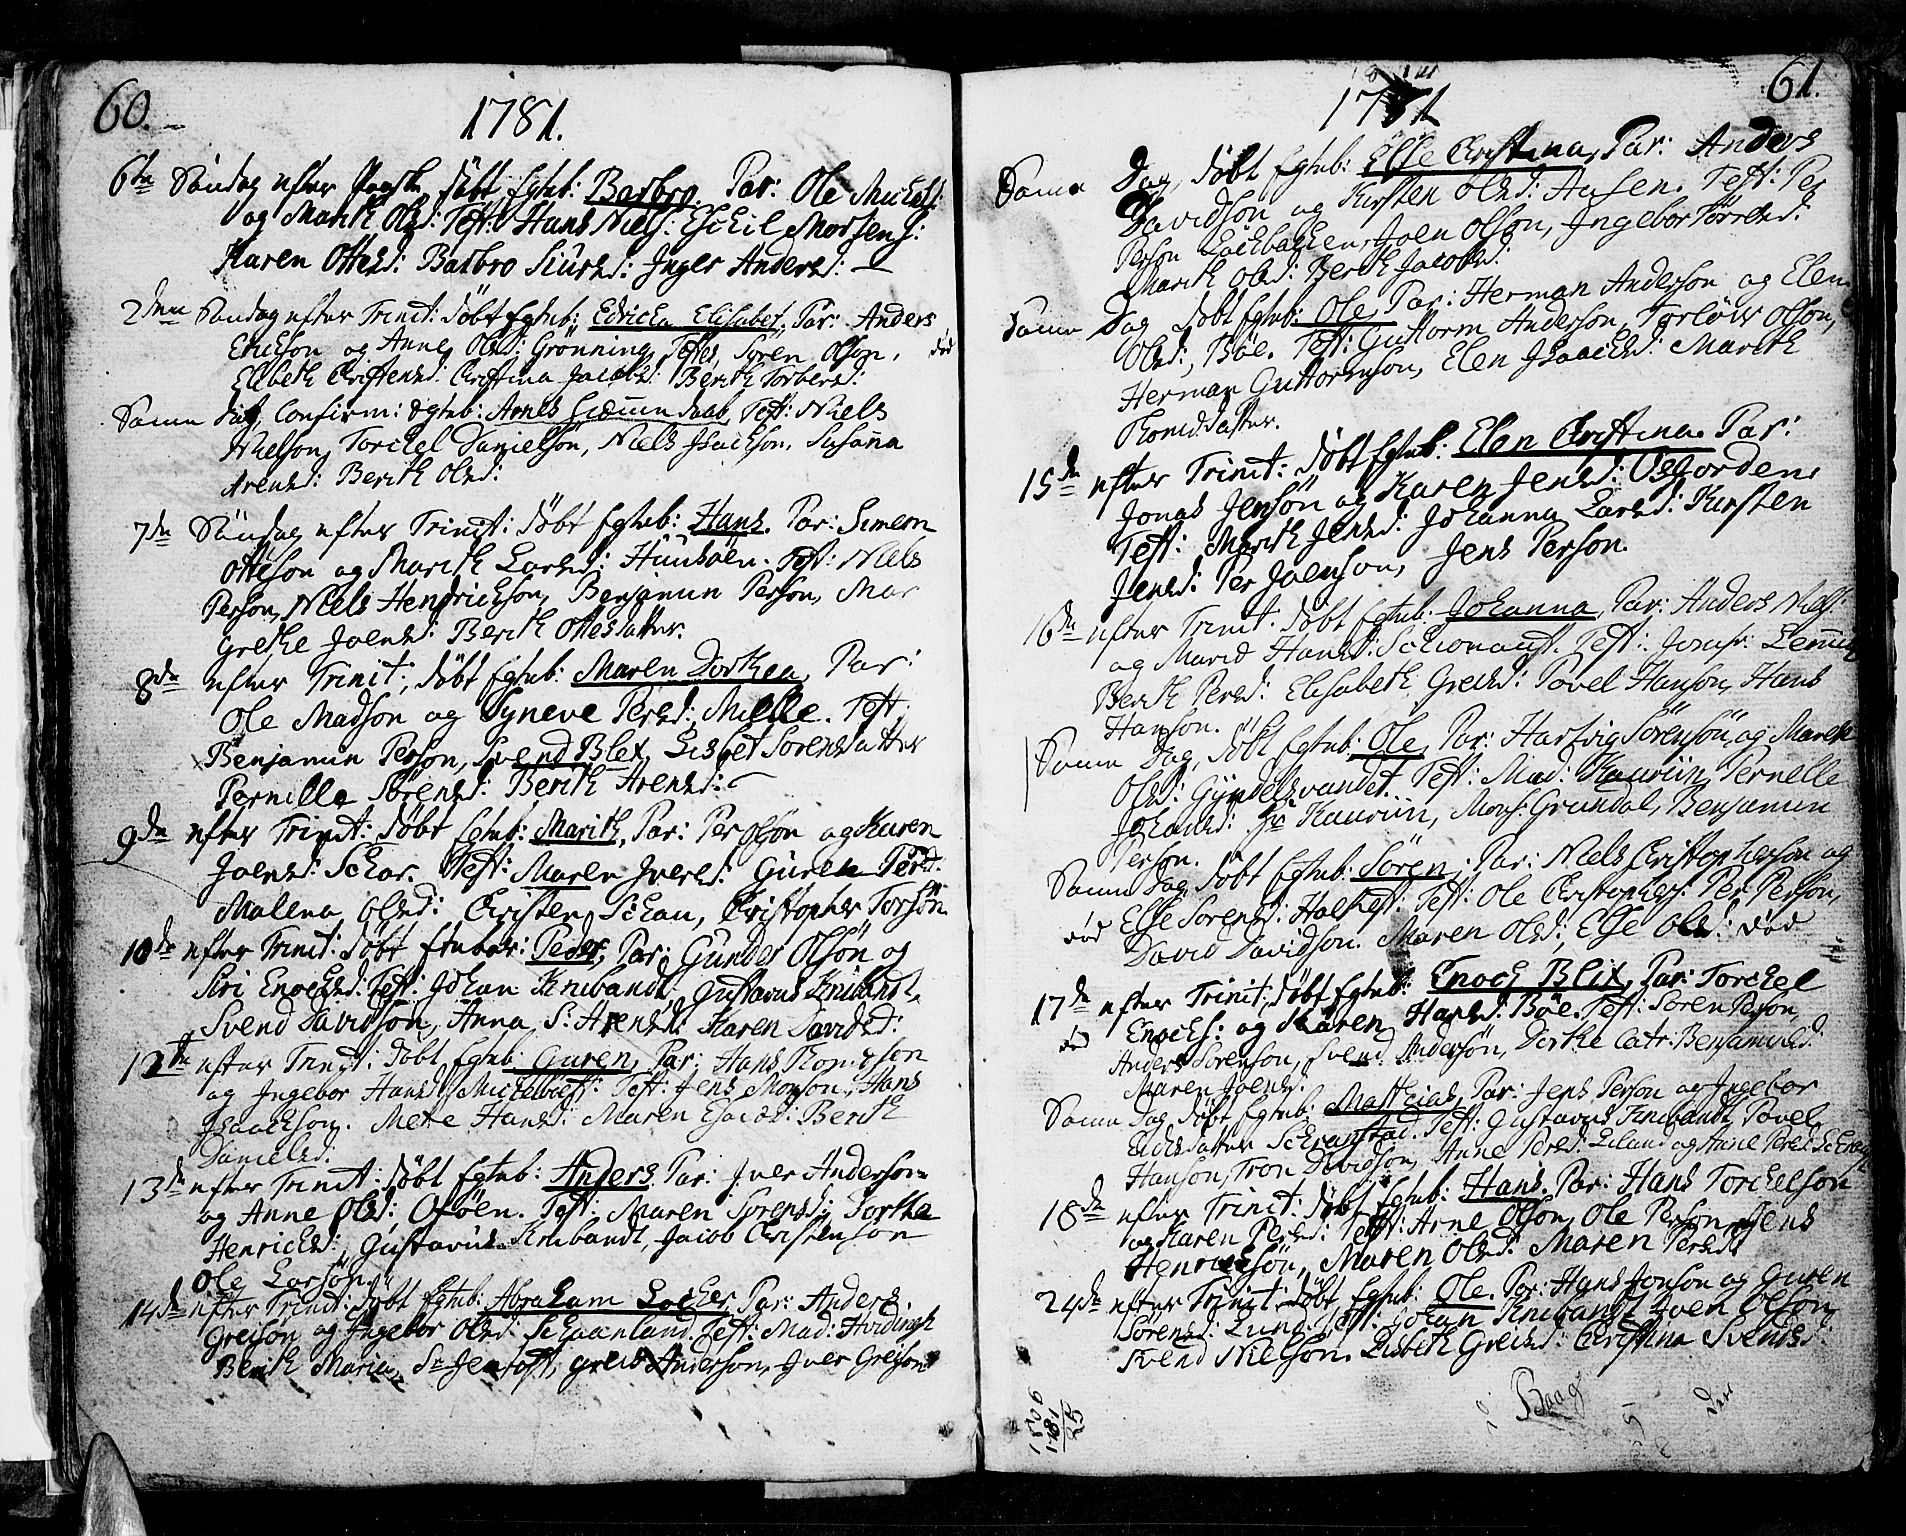 60.
1781.
6te Söndag efter Paaske, döbt Egteb: Barbro. Par: Ole Mickels:
og Marith Olsd: Test: Hans Niels: Eschil Mortens:
Karen Ottesd: Barbro Siursd: Inger Andersd: —
2den Söndag efter Trinit: döbt Egteb: Edvicka Elisabet, Par: Anders
Erickson og Anne Olsd: Grönning, Testes Sören Olson, död
Elibeth Christensd: Christina Jacobsd: Berith Torbersd:
Samme Dag, Confirm: Egteb: Test: Niels
Nielson, Torchel Danielsön, Niels Isachson, Susanna
Arensd: Berith Olsd:
7de Söndag efter Trinit: döbt Egteb: Hans. Par: Simeon
Otteson og Marith Larsd: Huusöen. Test: Niels
Person, Niels Hendrickson, Benjamin Person, Mar
grethe Joensd: Berith Ottesdatter.
8de efter Trinit: döbt Egteb: Maren Dorthea, Par:
Ole Madson og Syneve Persd: Melle. Test:
Benjamin Person, Svend Blex, Lisbet Sorensdatter
Pernille Sörensd: Berith Arensd:
9de efter Trinit: döbt Egteb: Marith, Par: Per Olsön og Karen
Joensd: Schar. Test: Maren Iversd: Guren Persd:
Malena Olsd: Christen Schau, Christopher Torsön
10de efter Trinit: döbt Egteb: Peder, Par: Gunder Olsön og
Siri Enochsd: Test: Johan Knibandt, Gustavus Knibandt,
Svend Davidsön, Anna S: Arensd: Karen Davidsd:
12te efter Trinit: döbt Egteb: Guren, Par: Hans Thomeson
og Ingebor Hansd: Mickelbost: Test: Jens Monson, Hans
Isaackson. Mette Hansd: Maren Esaiasd: Berith
Danielsd:
13de efter Trinit: döbt Egteb: Anders, Par: Iver Anderson
og Anne Olsd: Oföen. Test: Maren Sorensd: Dorthe
Henricsd: Gustavus Knibandt, Jacob Christenson
Ole Larsön.
14de efter Trinit: döbt Egteb: Abraham Locher, Par: Anders
Greison og Ingebor Olsd: Schaanland. Test: Mad: Hvidingh
Berith Maria, Sr Jentoft, Greis Anderson, Iver Greison
61.
1781
Samme Dag, döbt Egteb: Else Christina, Par: Anders
Davidsön og Kirsten Olsd: Ausen. Test: Per
Person Lochbakken, Joen Olsön, Ingebor Törresd:
Marith Olsd: Berith Jacobsd:
Samme Dag döbt Egteb: Ole, Par: Herman Anderson og Elen
Olsd: Böe. Test: Guttorm Anderson, Torlöw Olson,
Herman Guttormson, Elen Isaacksd: Marith
Thomisdatter.
15de efter Trinit: döbt Egteb: Elen Christina. Par:
Jonas Jensön og Karen Jensd: Osfjorden.
Test: Marith Jensd: Johanna Larsd: Kirsten
Jensd: Per Joenson, Jens Person.
16de efter Trinit: döbt Egteb: Johanna, Par: Anders Niels:
og Marid Hansd: Test: Jomfr:
Berith Persd: Elisabeth Greisd: Povel Hanson, Hans
Hanson.
Samme Dag, döbt Egteb: Ole, Par: Hartvig Sörensön, og Maren
Olsd: Gyndelsvandet. Test: Mad: Kauriin, Pernelle
Johansd: Sr Kauriin, Mons: Grundal, Benjamin
Person.
Samme Dag, döbt Egteb: Sören, Par: Niels Christopherson og
död Else Sorensd: Test: Ole Christophers: Per Person,
David Davidson. Maren Olsd: Else Olsd: död
17de efter Trinit: döbt Egteb: Enoch Blix, Par: Torchel
död Enochs: og Karen Hansd: Böe. Test: Soren Person,
Anders Sorenson, Svend Andersön, Dorthe Catr: Benjaminsd:
Maren Joensd:
Samme Dag döbt Egteb: Mathias, Par: Jens Person og Ingebor
Eidisdatter Test: Gustavus Knibandt, Povel
Hanson, Tron Davidsön, Anne Persd: Eiland og Anne Persd:
18de efter Trinit: döbt Egteb: Hans, Par: Hans Torchelson
og Karen Persd: Test: Arne Olson, Ole Person, Jens
Henricksön, Maren Olsd: Maren Persd:
24de efter Trinit: döbt Egteb: Ole. Par: Hans Jonson og Guren
Sörensd: Lund. Test: Johan Knibandt, Iven Olson,
Svend Nielson. Lisbeth Greisd: Christina Svensd:
1806
1781
25
Baag